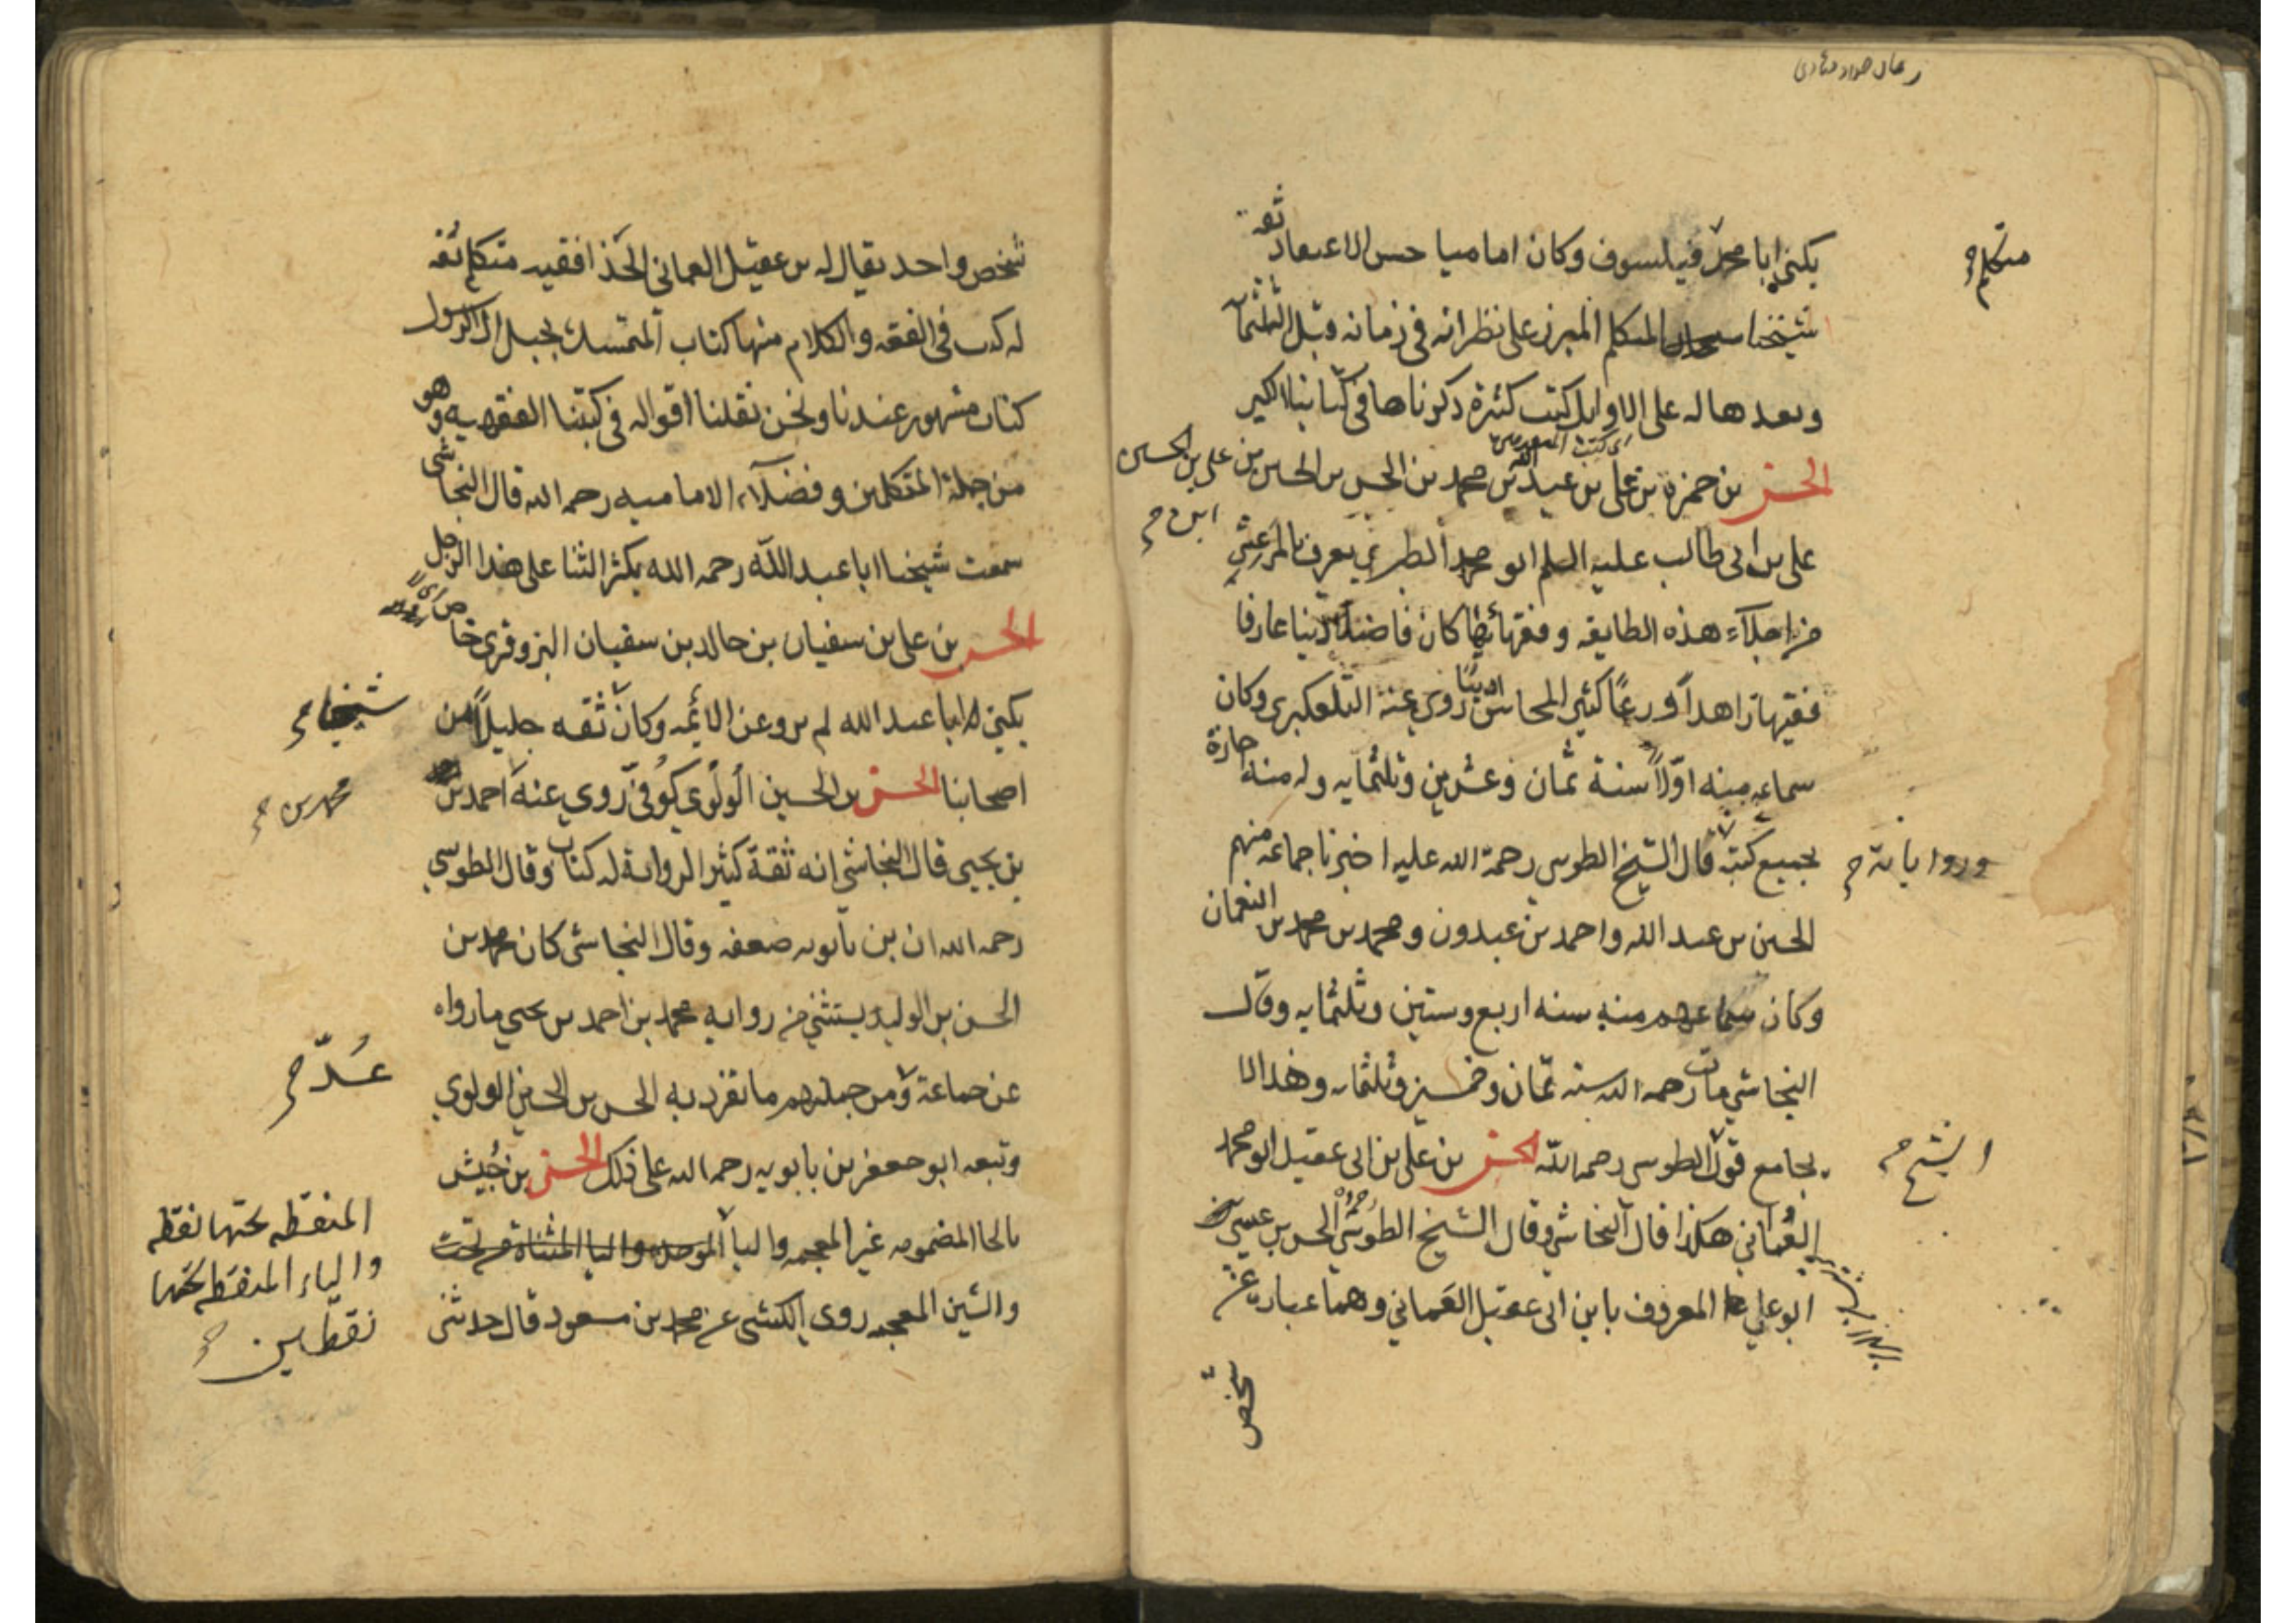 متكلم
يكنى ابا محمد فيلسوف وكان اماميا حسن الاعتقاد ثقة
شيخنا المتكلم المبرز على نظرائه في زمانه قبل الثلثمائة
وبعدها له على الاوايل كتب كثيرة ذكرناها في كتابنا الكبير
الحسن بن حمزة بن علي بن عبد الله بن محمد بن الحسن بن الحسين بن علي بن الحسين
ابن
علي بن ابي طالب عليه السلم ابو محمد الطبري يعرف بالمرعشي
من اجلاء هذه الطايفه وفقهائها كان فاضلا دينا عارفا
فقيها زاهدا ورعًا كثير المحاسن اديبًا روى عنه التلعكبري وكان
سماعه منه اوّلًا سنة ثمان وعشرين وثلثمايه وله منه اجازة
بجميع كتبه قال الشيخ الطوسي رحمة الله عليه اخبرنا جماعه منهم
ورواياته
الحسين بن عبد الله واحمد بن عبدون ومحمد بن محمد بن النعمان
وكان سماعهم منه سنه اربع وستين وثلثمايه وقال
النجاشي مات رحمه الله سنه ثمان وخمسين وثلثمايه وهذا لا
يجامع قول الطوسي رحمه الله الحسن بن علي بن ابي عقيل ابو محمد
الشيخ
العُماني هكذا قال النجاشي وقال الشيخ الطوسي الحسن بن عيسى
ابو علي المعروف بابن ابي عقيل العَماني وهما عبارة عن
شخص
شخص واحد يقال له بن عقيل العماني الحذا فقيه متكلم ثقه
له كتب في الفقه والكلام منها كتاب المتمسك بحبل ال الرسول
كتاب مشهور عندنا ونحن نقلنا اقواله في كتبنا الفقهيه وهو
من جملة المتكلمين وفضلاء الاماميه رحمه الله قال النجاشي
سمعت شيخنا ابا عبد الله رحمه الله يكثر الثنا على هذا الرجل
الحسن بن علي بن سفيان بن خالد بن سفيان البزوفري خاص
يكنى ابا عبد الله لم يرو عن الائمه وكان ثقه جليلًا من
شيخنا
اصحابنا الحسن بن الحسين اللولوي كوفيّ روى عنه احمد بن
محمد بن
بن يحيى قال النجاشي انه ثقة كثير الرواية له كتاب وقال الطوسي
رحمه الله ان بن بابويه ضعفه وقال النجاشي كان محمد بن
الحسن بن الوليد يستثني من رواية محمد بن احمد بن يحيى ما رواه
عن جماعة ومن جملتهم ما تفرد به الحسن بن الحسين اللولوي
عُدّ
وتبعه ابو جعفر بن بابويه رحمه الله على ذلك الحسن بن خُبيش
بالحا المضمومه غير المعجمه والبا الموحده واليا المثناة من تحت
المنقطه تحتها نقطه
والياء المنقطه تحتها
نقطتين
والشين المعجمه روى الكشي عن محمد بن مسعود قال حدثني